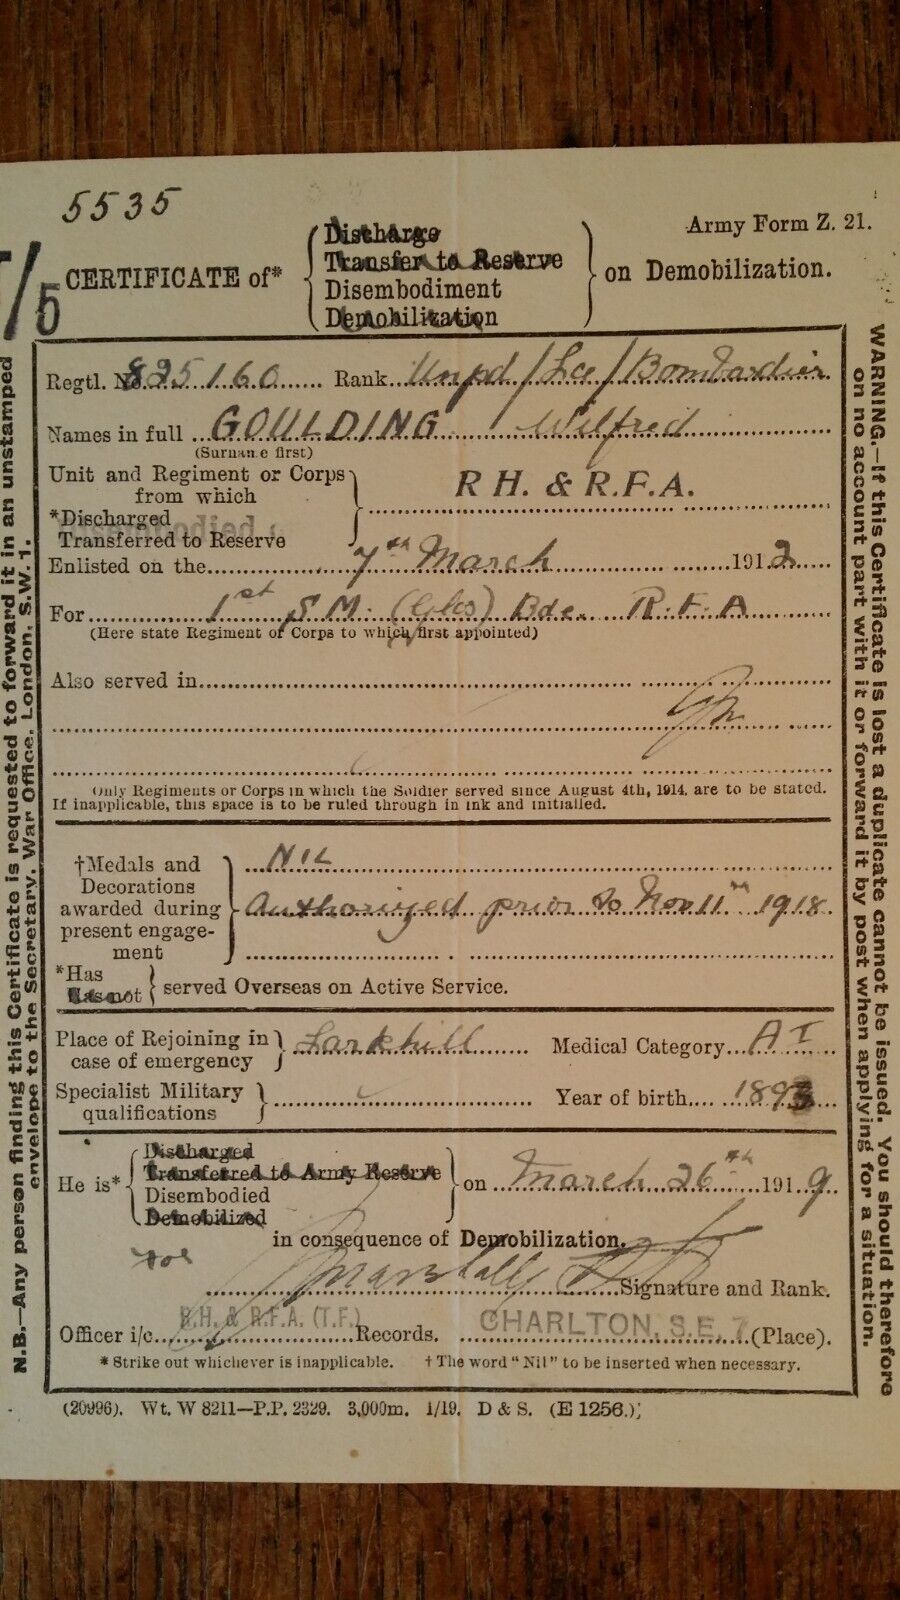 5535
Army Form Z. 21.
/5
CERTIFICATE of* { Discharge
Transfer to Reserve
Disembodiment
Demobilization } on Demobilization.
Regtl. No. 825160 Rank Unpd/Lce/Bombardier
Names in full GOULDING Wilfred
(Surname first)
Unit and Regiment or Corps
from which
*Discharged
Transferred to Reserve
Disembodied
R H. & R.F.A.
Enlisted on the 7th March 1912
For 1st S.M. (Glos) Bde. R.F.A
(Here state Regiment or Corps to which first appointed)
Also served in
Only Regiments or Corps in which the Soldier served since August 4th, 1914, are to be stated.
If inapplicable, this space is to be ruled through in ink and initialled.
†Medals and
Decorations
awarded during
present engage-
ment
NIL
Authorized prior to Nov 11th 1918
*Has
Has not } served Overseas on Active Service.
Place of Rejoining in
case of emergency } Larkhill Medical Category A I
Specialist Military
qualifications } Year of birth 1893
He is* { Discharged
Transferred to Army Reserve
Disembodied
Demobilized } on March 26th 1919
in consequence of Demobilization.
for
Signature and Rank.
Officer i/c R.H. & R.F.A. (T.F.) Records. CHARLTON, S.E. 7. (Place).
* Strike out whichever is inapplicable. † The word "Nil" to be inserted when necessary.
(20996). Wt. W 8211—P.P. 2329. 3,000m. 1/19. D & S. (E 1256.)
N.B.—Any person finding this Certificate is requested to forward it in an unstamped
envelope to the Secretary, War Office, London, S.W. 1.
WARNING.—If this Certificate is lost a duplicate cannot be issued. You should therefore
on no account part with it or forward it by post when applying for a situation.